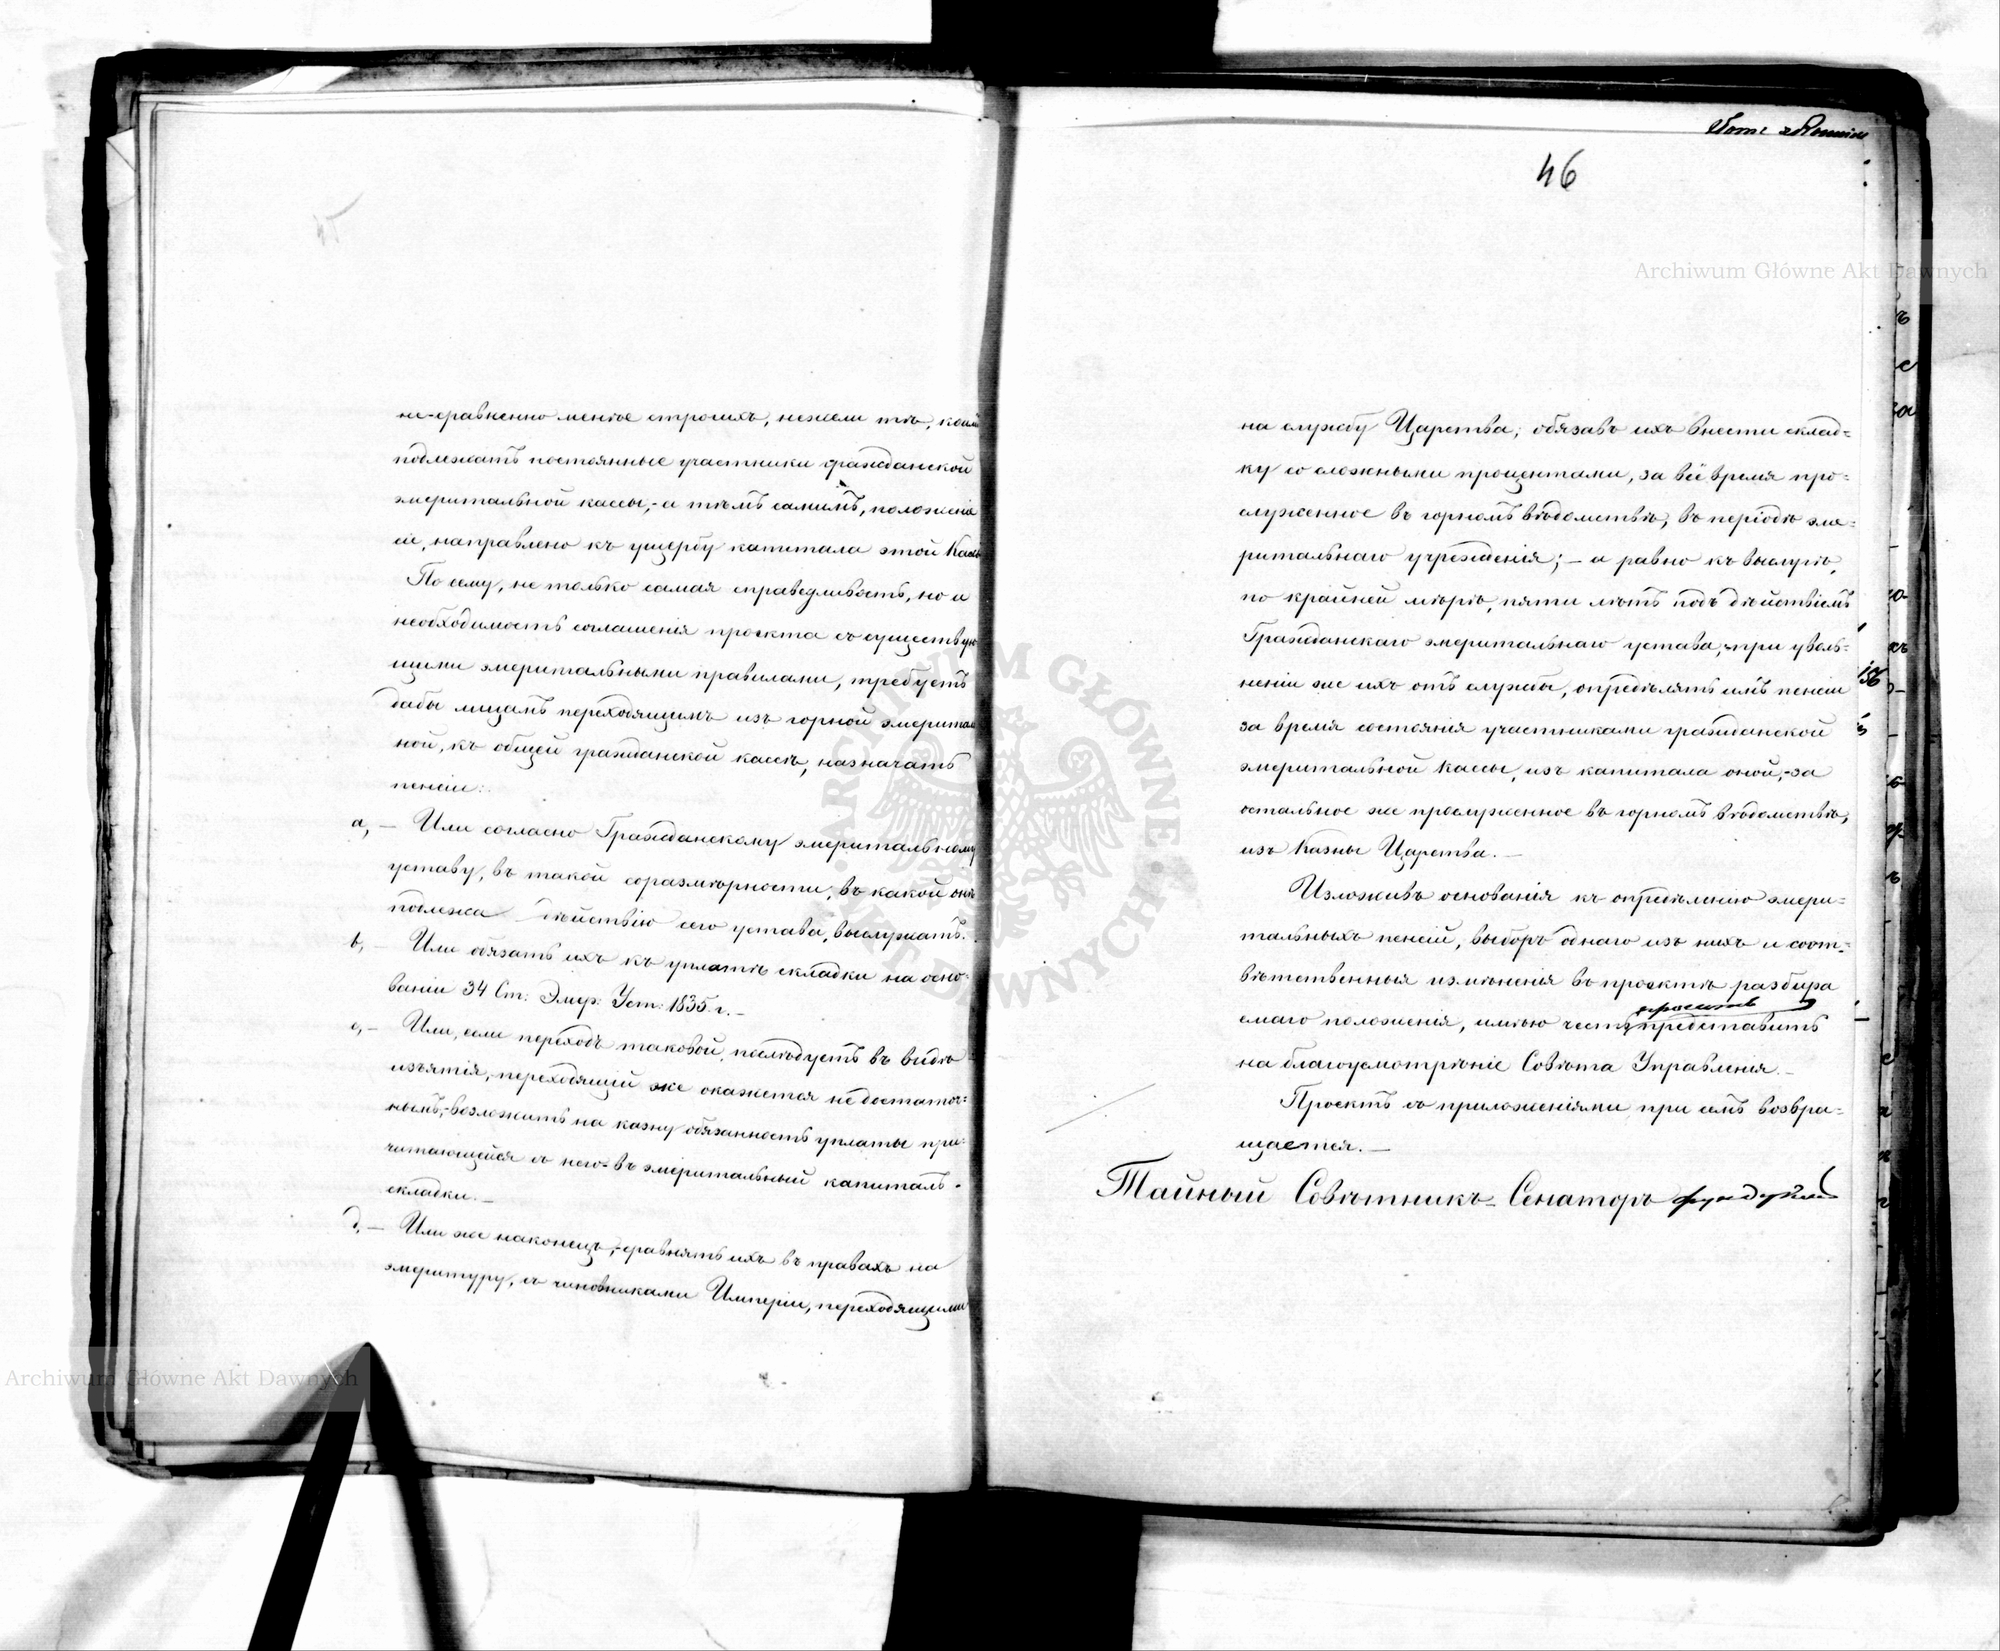 не-сравненно менѣе строгихъ, нежели тѣ, коим
подлежатъ постоянные участники гражданской
эмеритальной кассы,- а тѣмъ самымъ, положеніе
сіе, направлено къ ущербу капитала этой Кассы
По сему, не только самая справедливость, но и
необходимость соглашенія проекта съ существую
щими эмеритальными правилами, требуетъ
дабы лицамъ переходящимъ изъ горной эмериталь
ной, къ общей гражданской кассѣ, назначать
пенсіи:
a, — Или согласно Гражданскому эмеритальному
уставу, въ такой соразмѣрности, въ какой они
подлежа дѣйствію сего устава, выслужатъ.
b, — Или обязать ихъ къ уплатѣ складки на осно-
ваніи 34 Ст: Эмер: Уст: 1835 г. —
c, — Или, если переходъ таковой, послѣдуетъ въ видѣ
изъятія,- переходящій же окажется не достаточ=
нымъ,- возложить на казну обязанность уплаты при-
читающейся съ него- въ эмеритальный капиталъ-
складки. —
d, — Или же наконецъ,- сравнять ихъ въ правахъ на
эмеритуру, съ чиновниками Имперіи, переходящими
46
на службу Царства, обязавъ ихъ внести склад=
ку со сложными процентами, за всё время про=
служенное въ горномъ вѣдомствѣ, въ періодѣ эме=
ритальнаго учрежденія; — а равно къ выслугѣ,
по крайней мѣрѣ, пяти лѣтъ подъ дѣйствіемъ
Гражданскаго эмеритальнаго устава,- при уволь=
неніи же ихъ отъ службы, опредѣлять имъ пенсіи
за время состоянія участниками гражданской
эмеритальной кассы, изъ капитала оной,- за
остальное же прослуженное въ горномъ вѣдомствѣ,
изъ Казны Царства. —
Изложивъ основанія къ опредѣленію эмери=
тальныхъ пенсій, выборъ однаго изъ нихъ и соот=
вѣтственныя измѣненія въ проектѣ разбира
емаго положенія, имѣю честь представить
на благоусмотрѣніе Совѣта Управленія. —
Проектъ съ приложеніями при семъ возвра=
щается. —
Тайный Совѣтникъ- Сенаторъ Фундуклей
156
Archiwum Główne Akt Dawnych
Archiwum Główne Akt Dawnych
ARCHIWUM GŁÓWNE AKT DAWNYCH